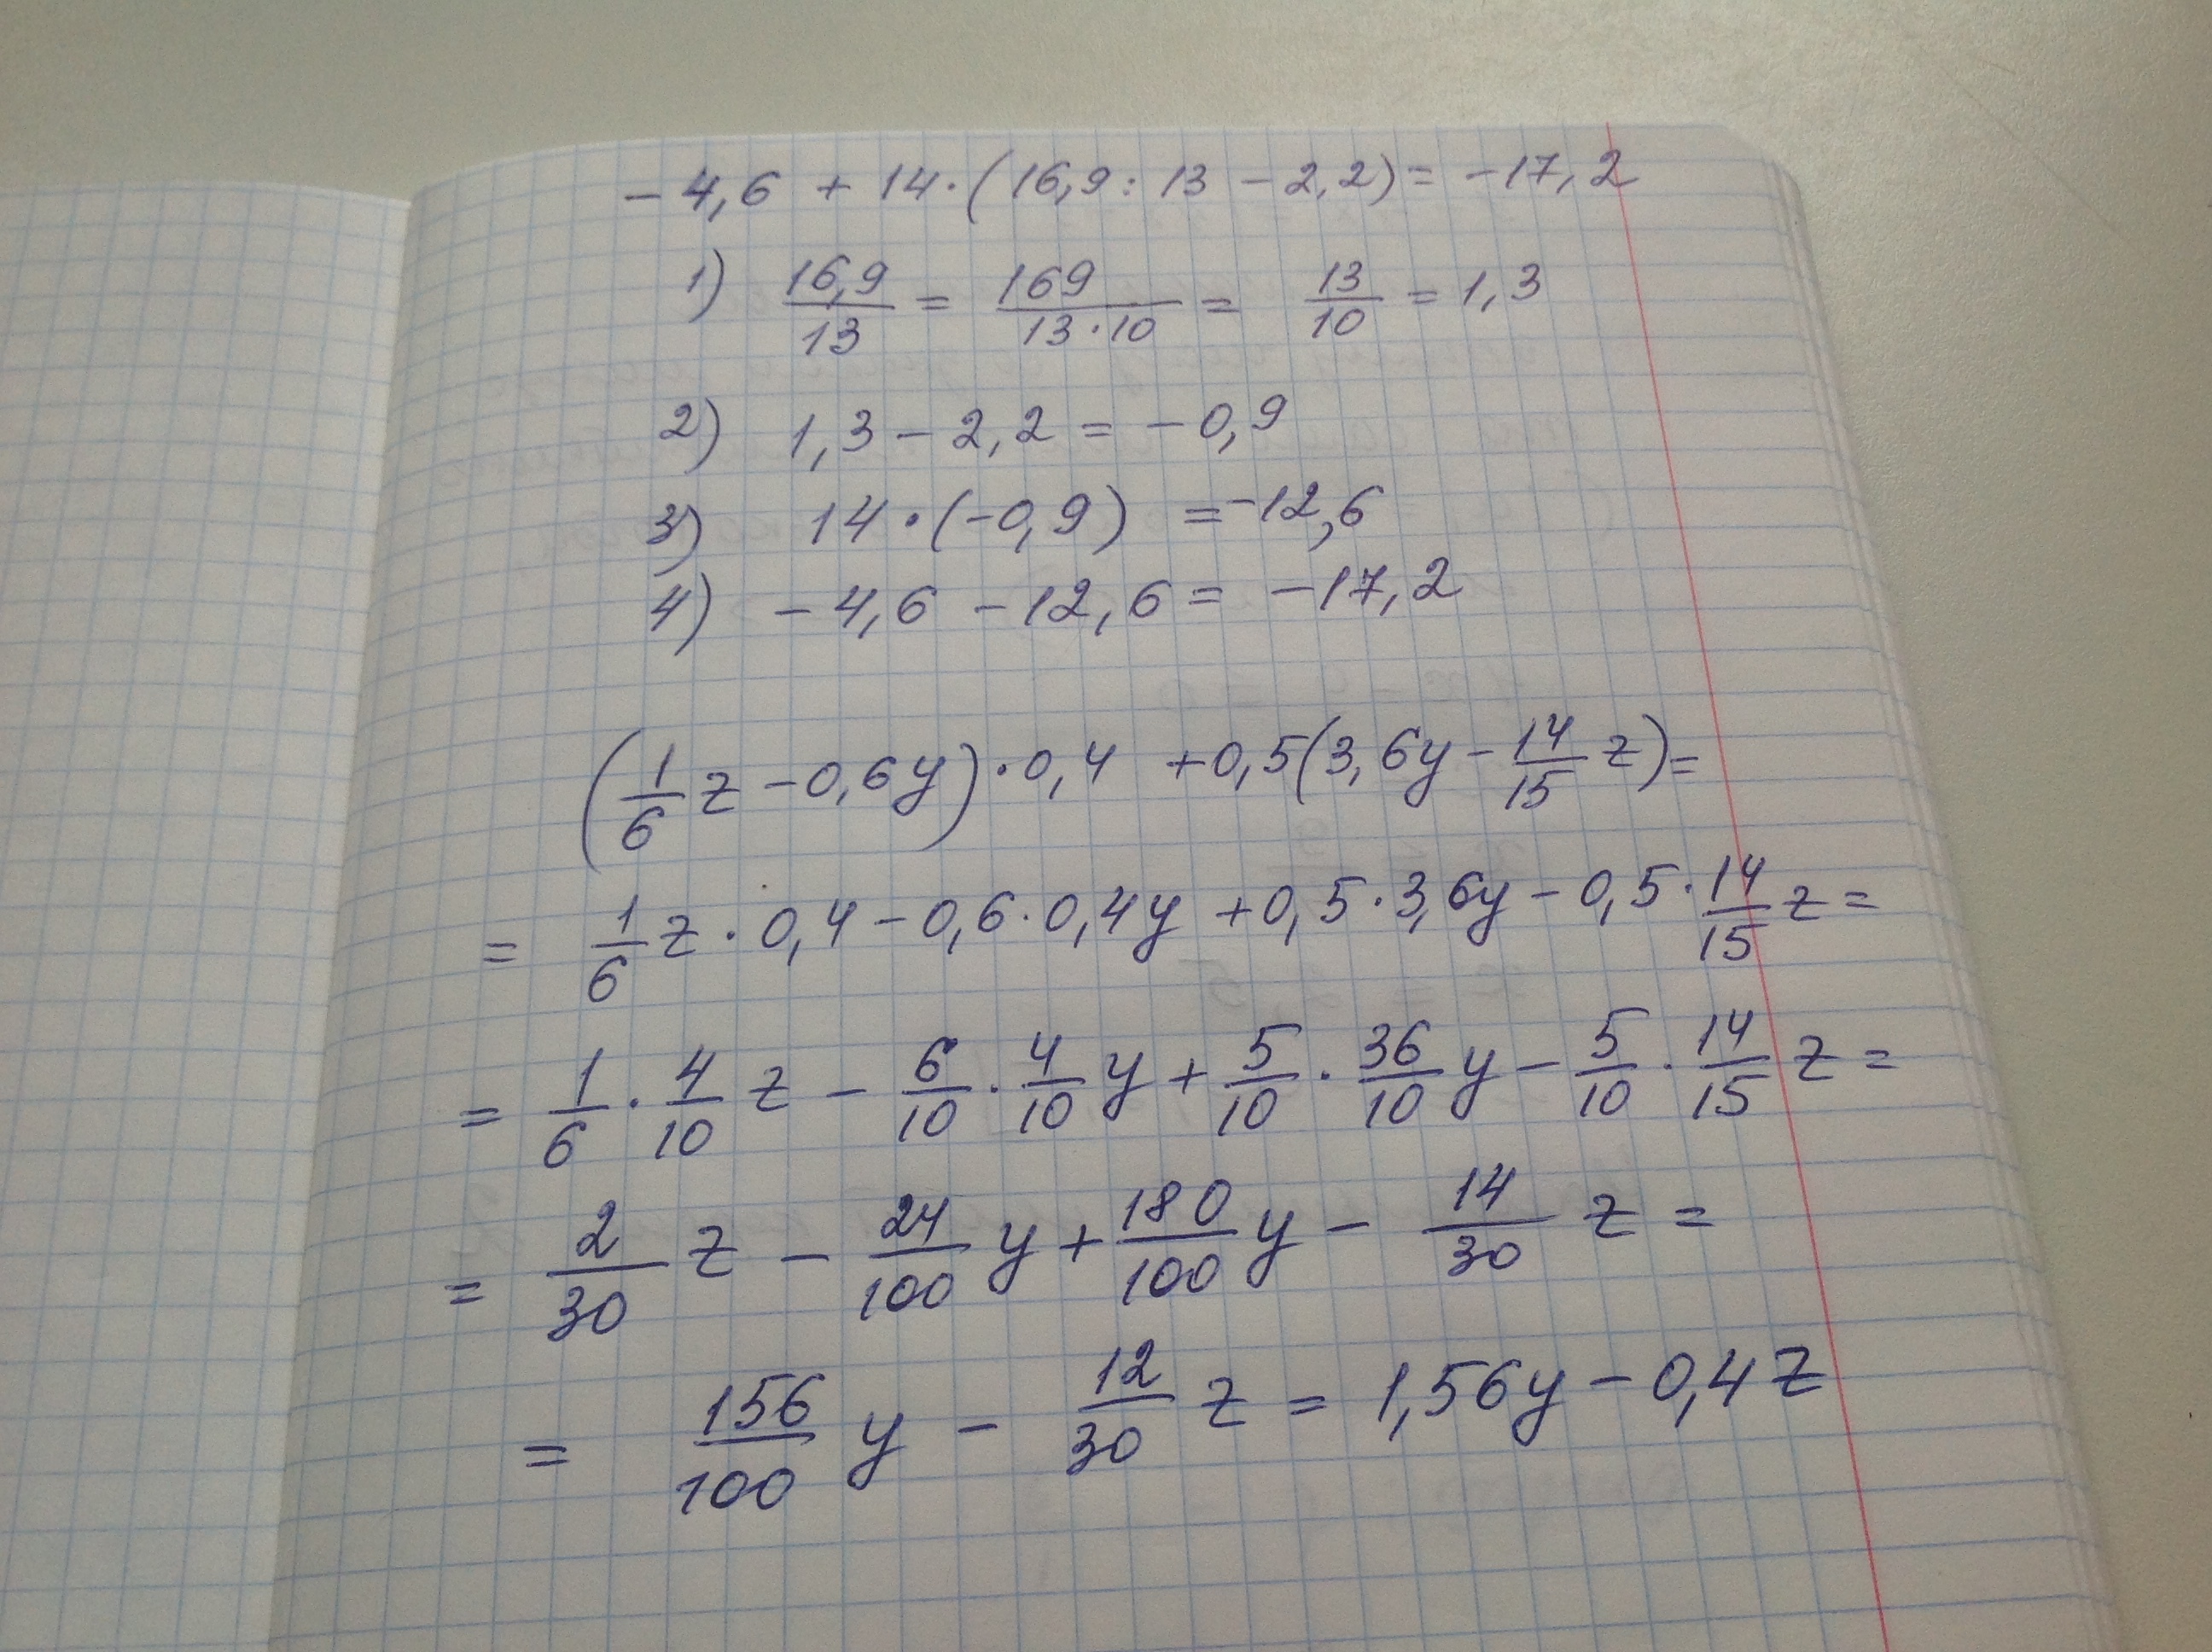 - 4,6 + 14·(16,9 : 13 - 2,2) = -17,2
1) 16,9/13 = 169/(13·10) = 13/10 = 1,3
2) 1,3 - 2,2 = -0,9
3) 14·(-0,9) = -12,6
4) -4,6 - 12,6 = -17,2
(1/6 z - 0,6y)·0,4 + 0,5(3,6y - 14/15 z) =
= 1/6 z·0,4 - 0,6·0,4y + 0,5·3,6y - 0,5·14/15 z =
= 1/6·4/10 z - 6/10·4/10 y + 5/10·36/10 y - 5/10·14/15 z =
= 2/30 z - 24/100 y + 180/100 y - 14/30 z =
= 156/100 y - 12/30 z = 1,56y - 0,4z